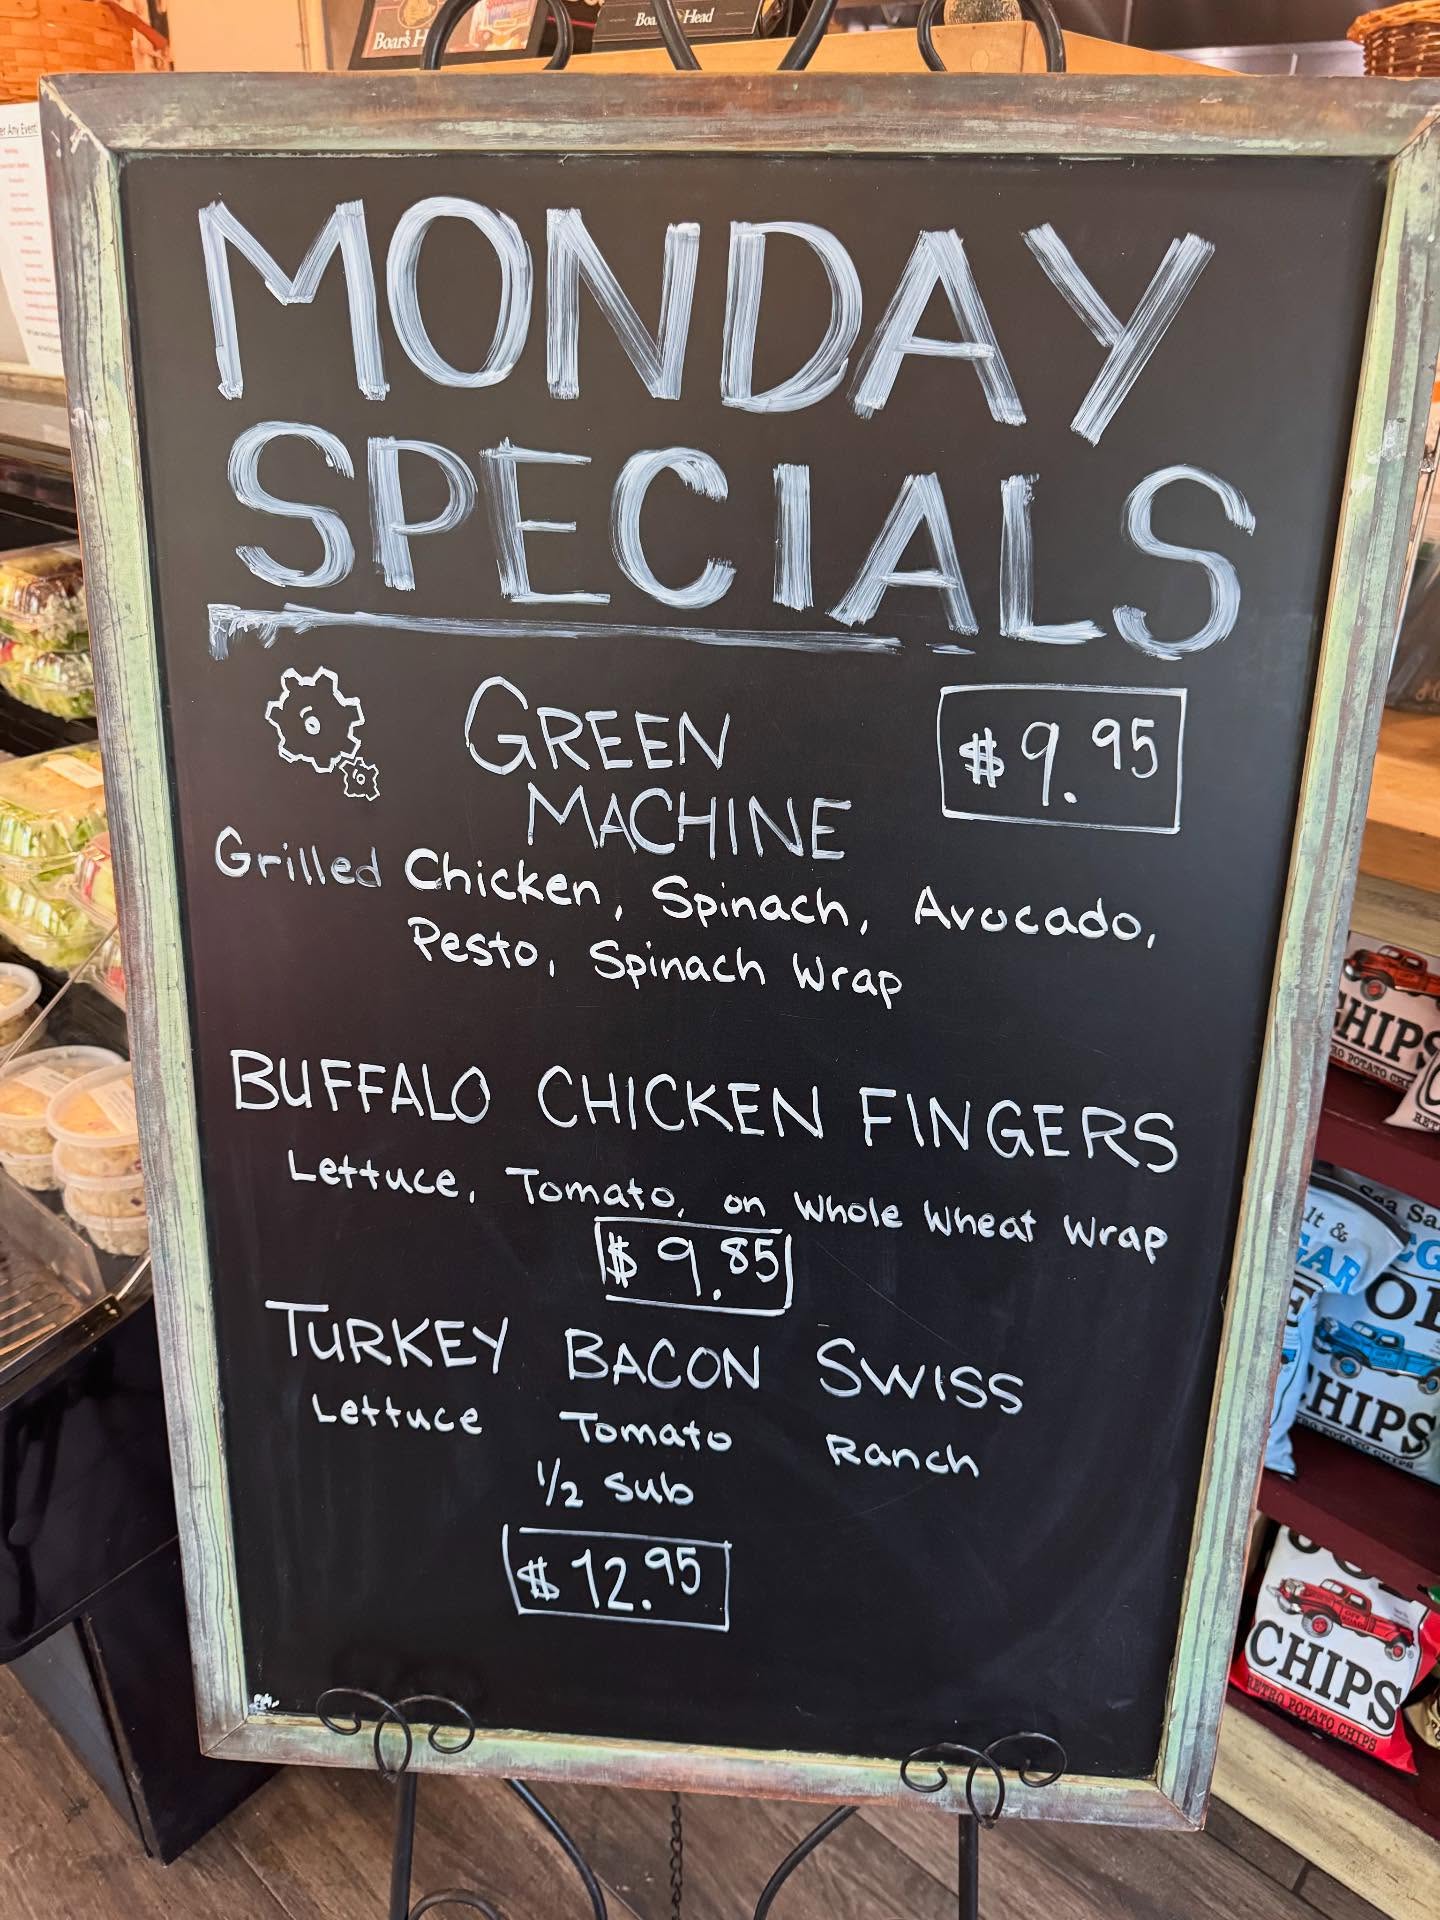 Boar's H
Boar's Head
er Any Event
MONDAY
SPECIALS
GREEN
MACHINE
$9.95
Grilled Chicken, Spinach, Avocado,
Pesto, Spinach Wrap
BUFFALO CHICKEN FINGERS
Lettuce, Tomato, on Whole Wheat Wrap
$9.85
TURKEY BACON SWISS
Lettuce Tomato Ranch
1/2 Sub
$12.95
CHIPS
Sea Sa
lt &
CHIPS
RETRO POTATO CHIPS